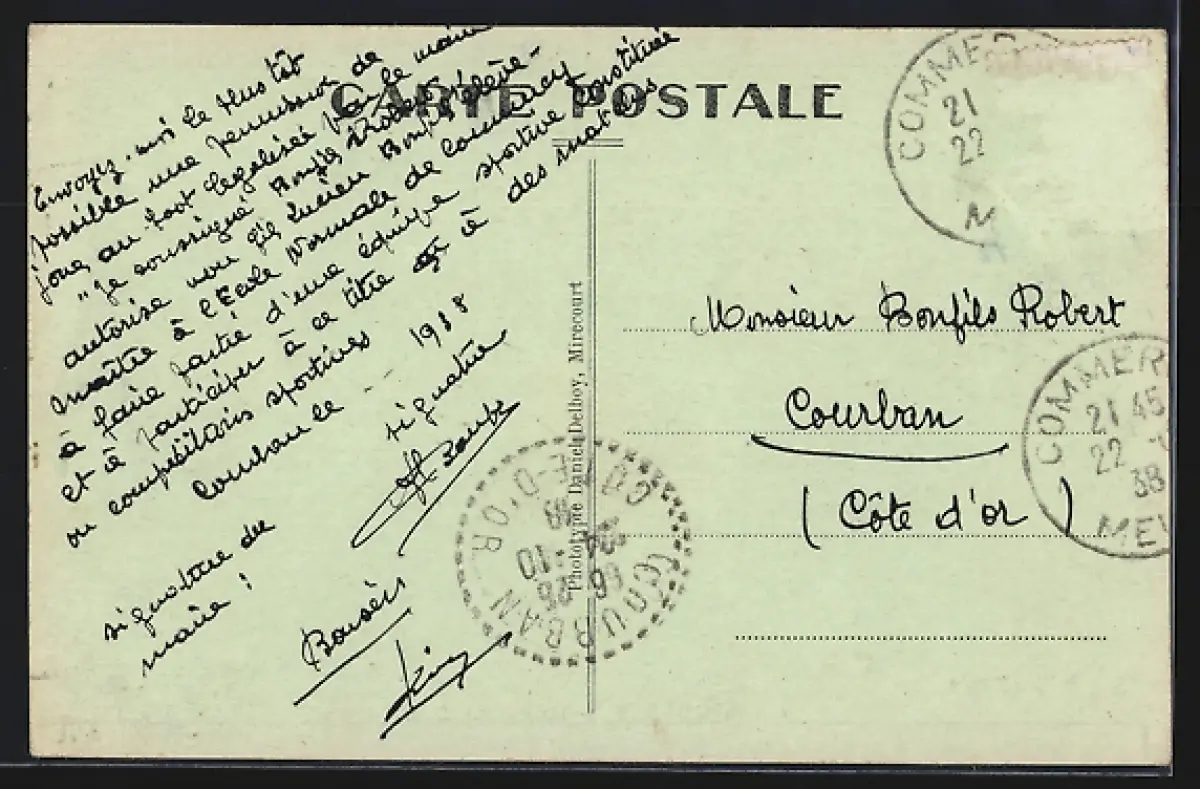 CARTE POSTALE
Envoyez-moi le plus tôt
possible une permission de
jouer au foot légalisée par le maire
"Je soussigné Bonfils Robert
autorise mon fils Lucien Bonfils élève-
maître à l'Ecole Normale de Commercy
à faire partie d'une équipe sportive constituée
et à participer à ce titre à des matchs
ou compétitions sportives
Courban le -- 1938
signature
signature du
maire !
Baisers
Monsieur Bonfils Robert
Courban
(Côte d'or)
Phototypie Daniel Delboy, Mirecourt
COMMER
21
22
M
COMMER
21 45
22
38
ME
COURBAN
CÔTE-D'OR